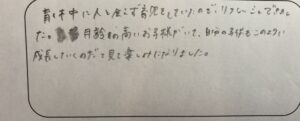 育休中に人と会えず育児をしていたので、リフレッシュできまし
た。月齢の高いお子様がいて、自分の子供もこのように
成長していくのだと見て楽しみになりました。